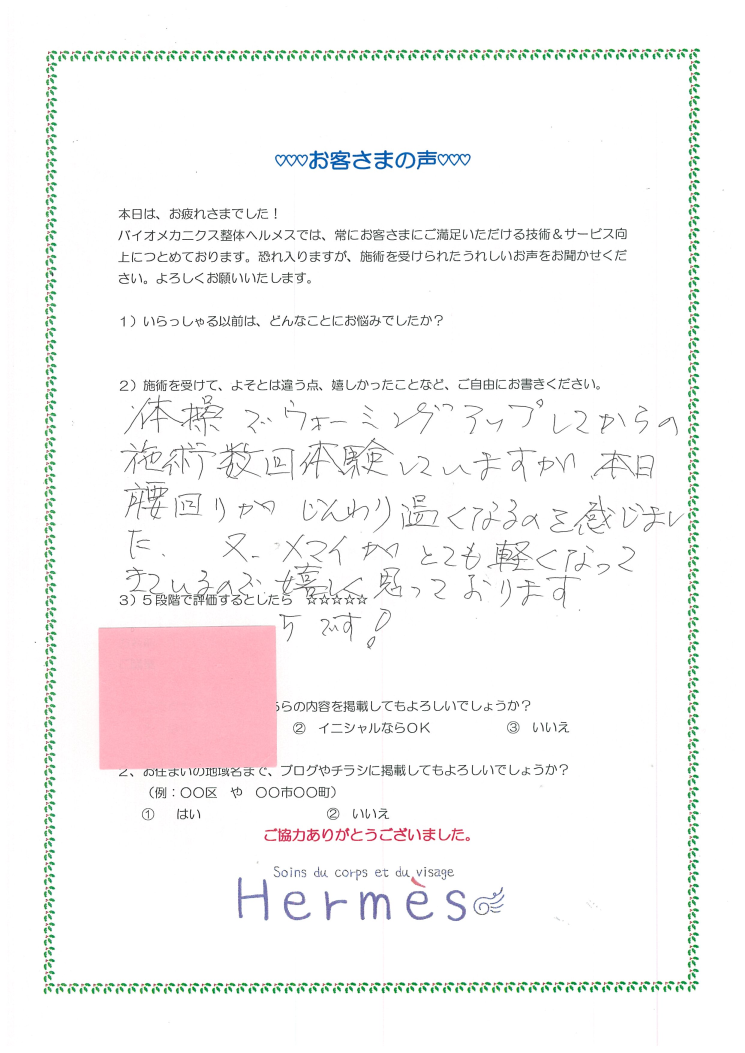 ♡♡♡お客さまの声♡♡♡
本日は、お疲れさまでした！
バイオメカニクス整体ヘルメスでは、常にお客さまにご満足いただける技術＆サービス向
上につとめております。恐れ入りますが、施術を受けられたうれしいお声をお聞かせくだ
さい。よろしくお願いいたします。
１）いらっしゃる以前は、どんなことにお悩みでしたか？
２）施術を受けて、よそとは違う点、嬉しかったことなど、ご自由にお書きください。
体操でウォーミングアップしてからの
施術数回体験していますが、本日
腰回りが じんわり温くなるのを感じまし
た、 又、メマイが とても軽くなって
きているので 嬉しく思っております
３）５段階で評価するとしたら ☆☆☆☆☆
5です！
らの内容を掲載してもよろしいでしょうか？
② イニシャルならＯＫ ③ いいえ
２、お住まいの地域名まで、ブログやチラシに掲載してもよろしいでしょうか？
（例：〇〇区 や 〇〇市〇〇町）
① はい ② いいえ
ご協力ありがとうございました。
Soins du corps et du visage
Hermès